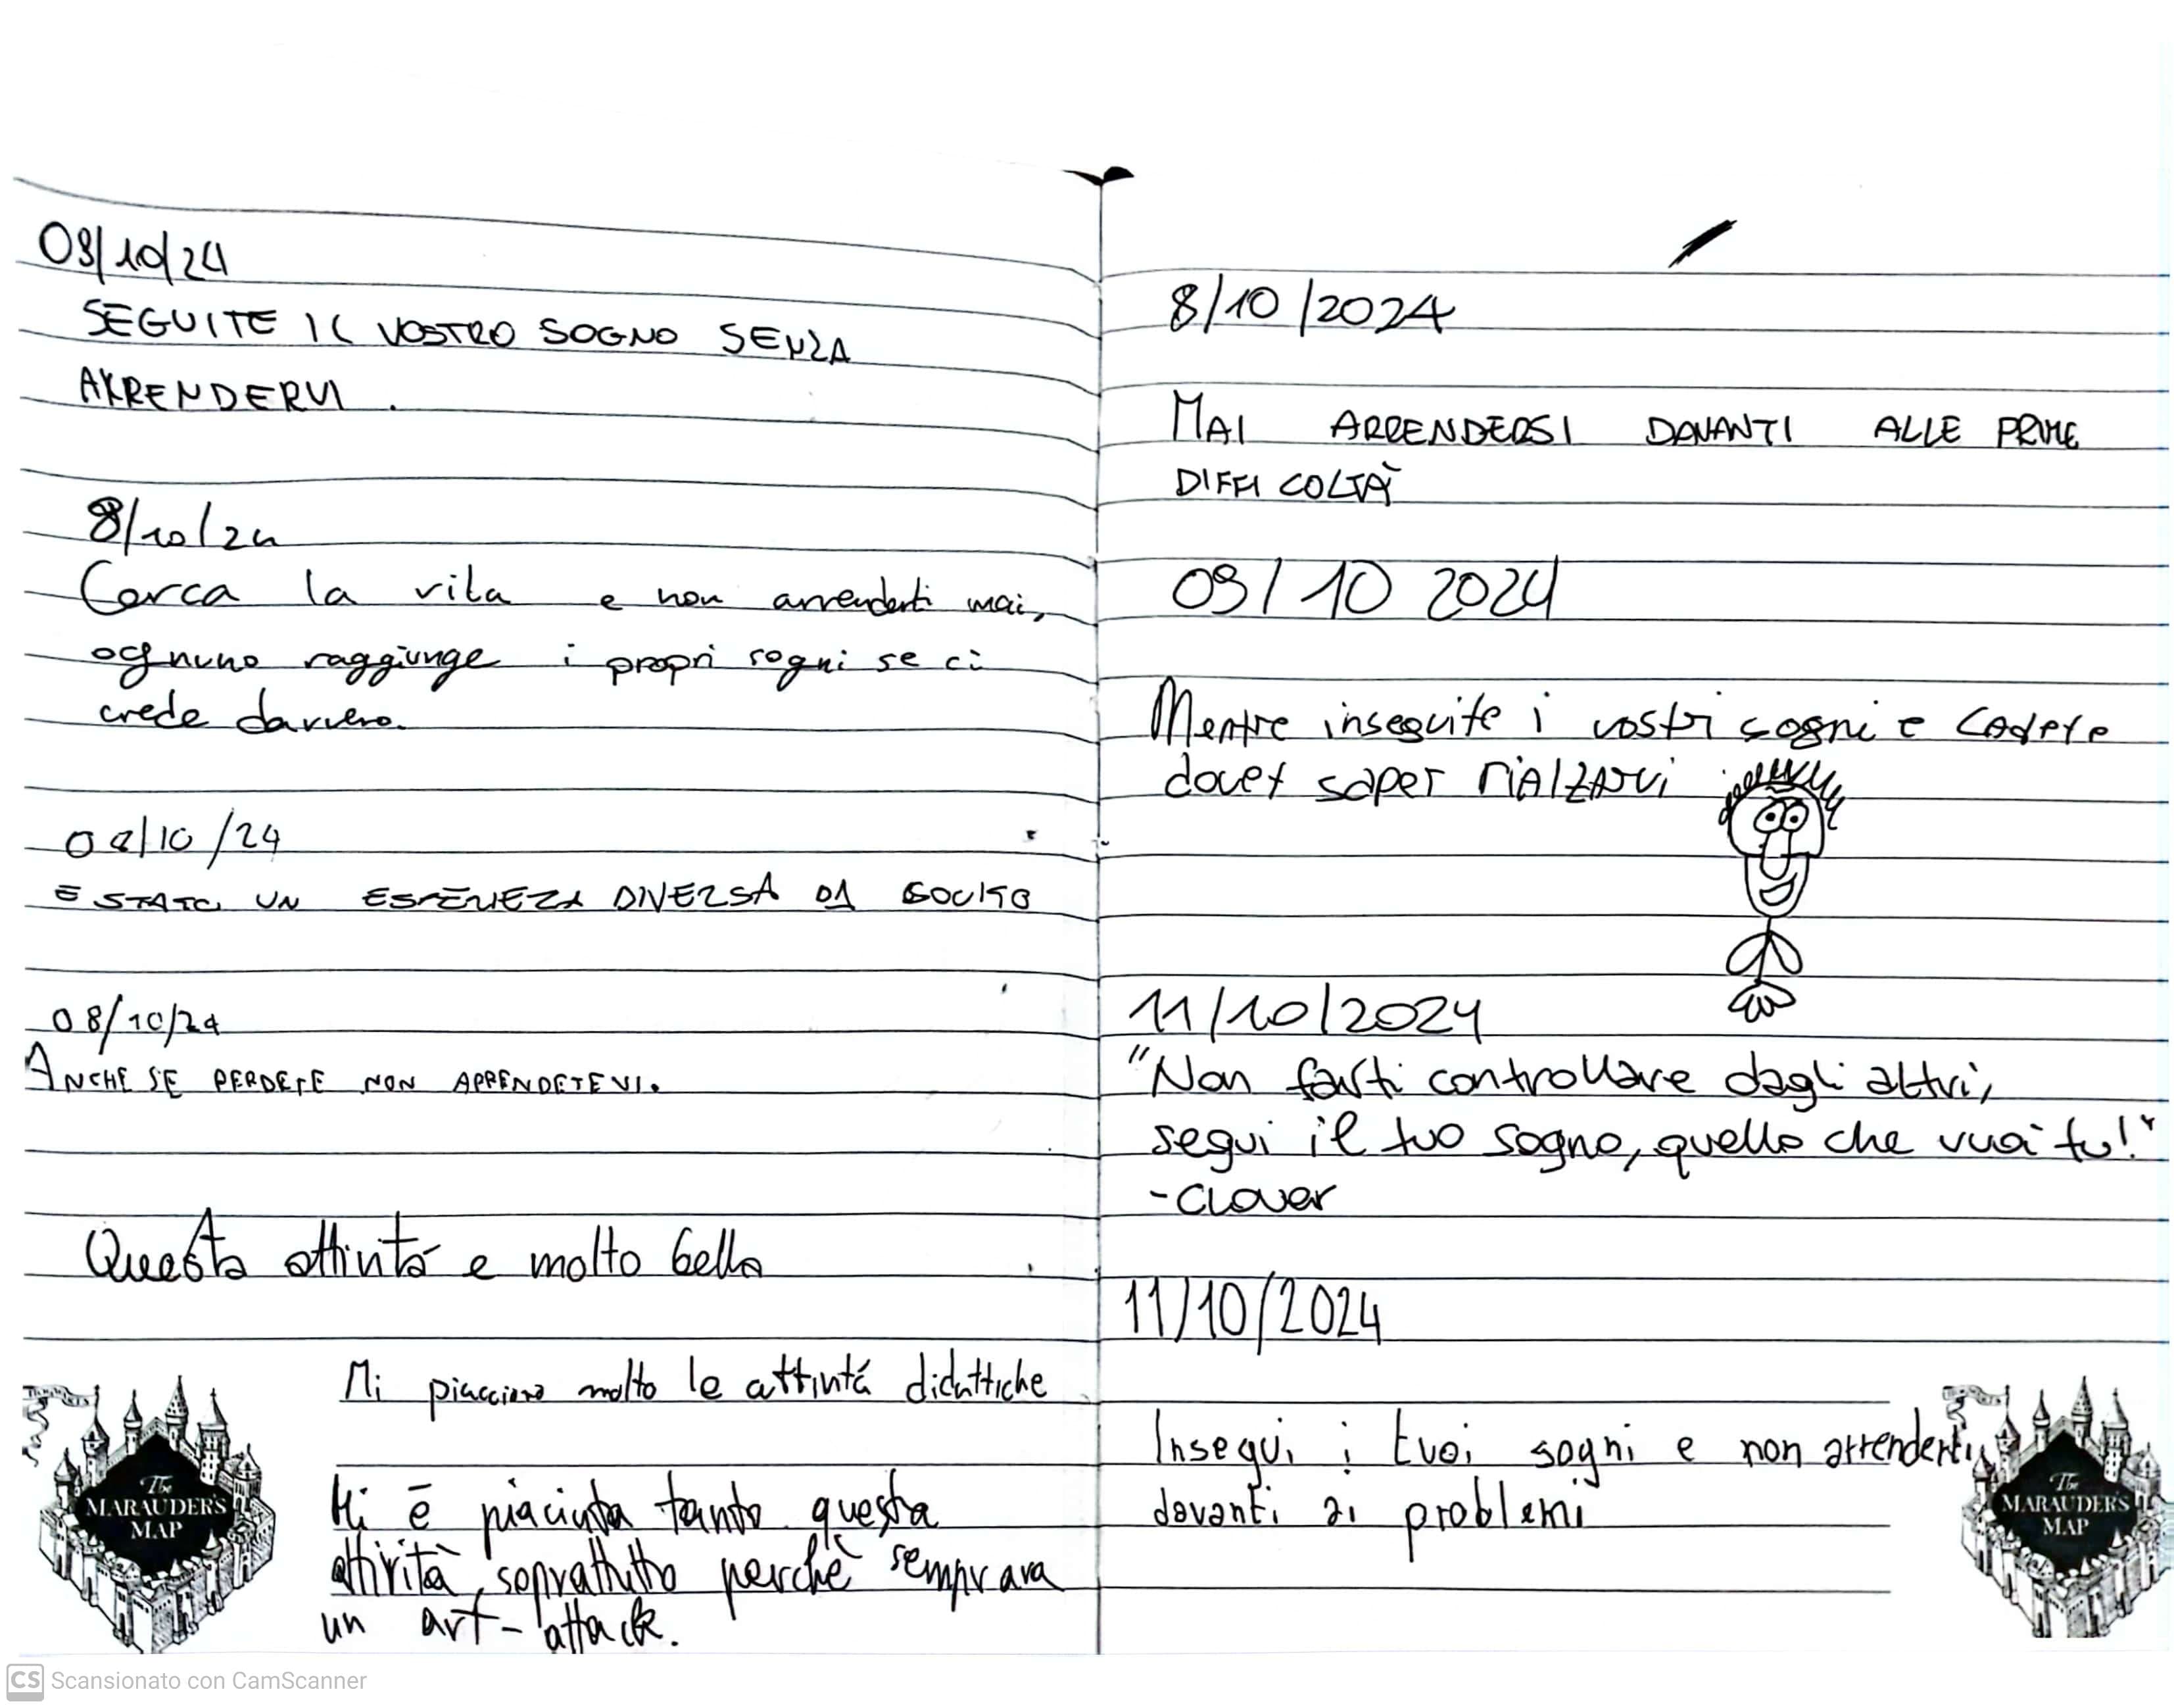 08/10/24
SEGUITE IL VOSTRO SOGNO SENZA
ARRENDERVI.
8/10/24
Cerca la vita e non arrenderti mai,
ognuno raggiunge i propri sogni se ci
crede davvero.
08/10/24
E STATO UN DIVERSA DA SOLITO
08/10/24
ANCHE SE PERDETE NON ARRENDETEVI.
Questa attivitá e molto bella
Mi piacciono molto le attivitá didattiche
Mi è piaciuta tanto questa
attività, soprattutto perchè semprava
un art-attack.
The
MARAUDER'S
MAP
8/10/2024
MAI ARRENDERSI DAVANTI ALLE PRIME
DIFFICOLTÀ
09/10 2024
Mentre inseguite i vostri sogni e cadete
dovet saper RIALZARVI
11/10/2024
"Non farti controllare dagli altri,
segui il tuo sogno, quello che vuoi tu!"
-Clover
11/10/2024
Insegui i tuoi sogni e non arrenderti
davanti ai problemi
The
MARAUDER'S
MAP
CS Scansionato con CamScanner